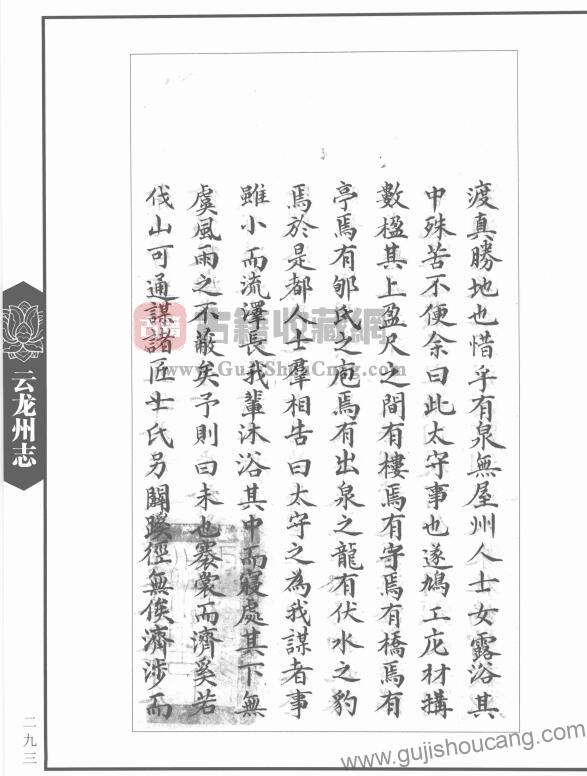 渡真勝地也惜乎有泉無屋州人士女露浴其
中殊苦不便余曰此太守事也遂鳩工庀材搆
數楹其上盈尺之間有樓焉有宇焉有橋焉有
亭焉有郇氏之庖焉有出泉之龍有伏水之豹
焉於是都人士羣相告曰太守之為我謀者事
雖小而流澤長我輩沐浴其中而寢處其下無
虞風雨之不蔽矣予則曰未也褰裳而濟奚若
伐山可通謀諸匠士氏另闢蹊徑無俟濟涉而
云龙州志
二九三
古籍收藏網
www.GuJiShouCang.com
www.gujishoucang.com